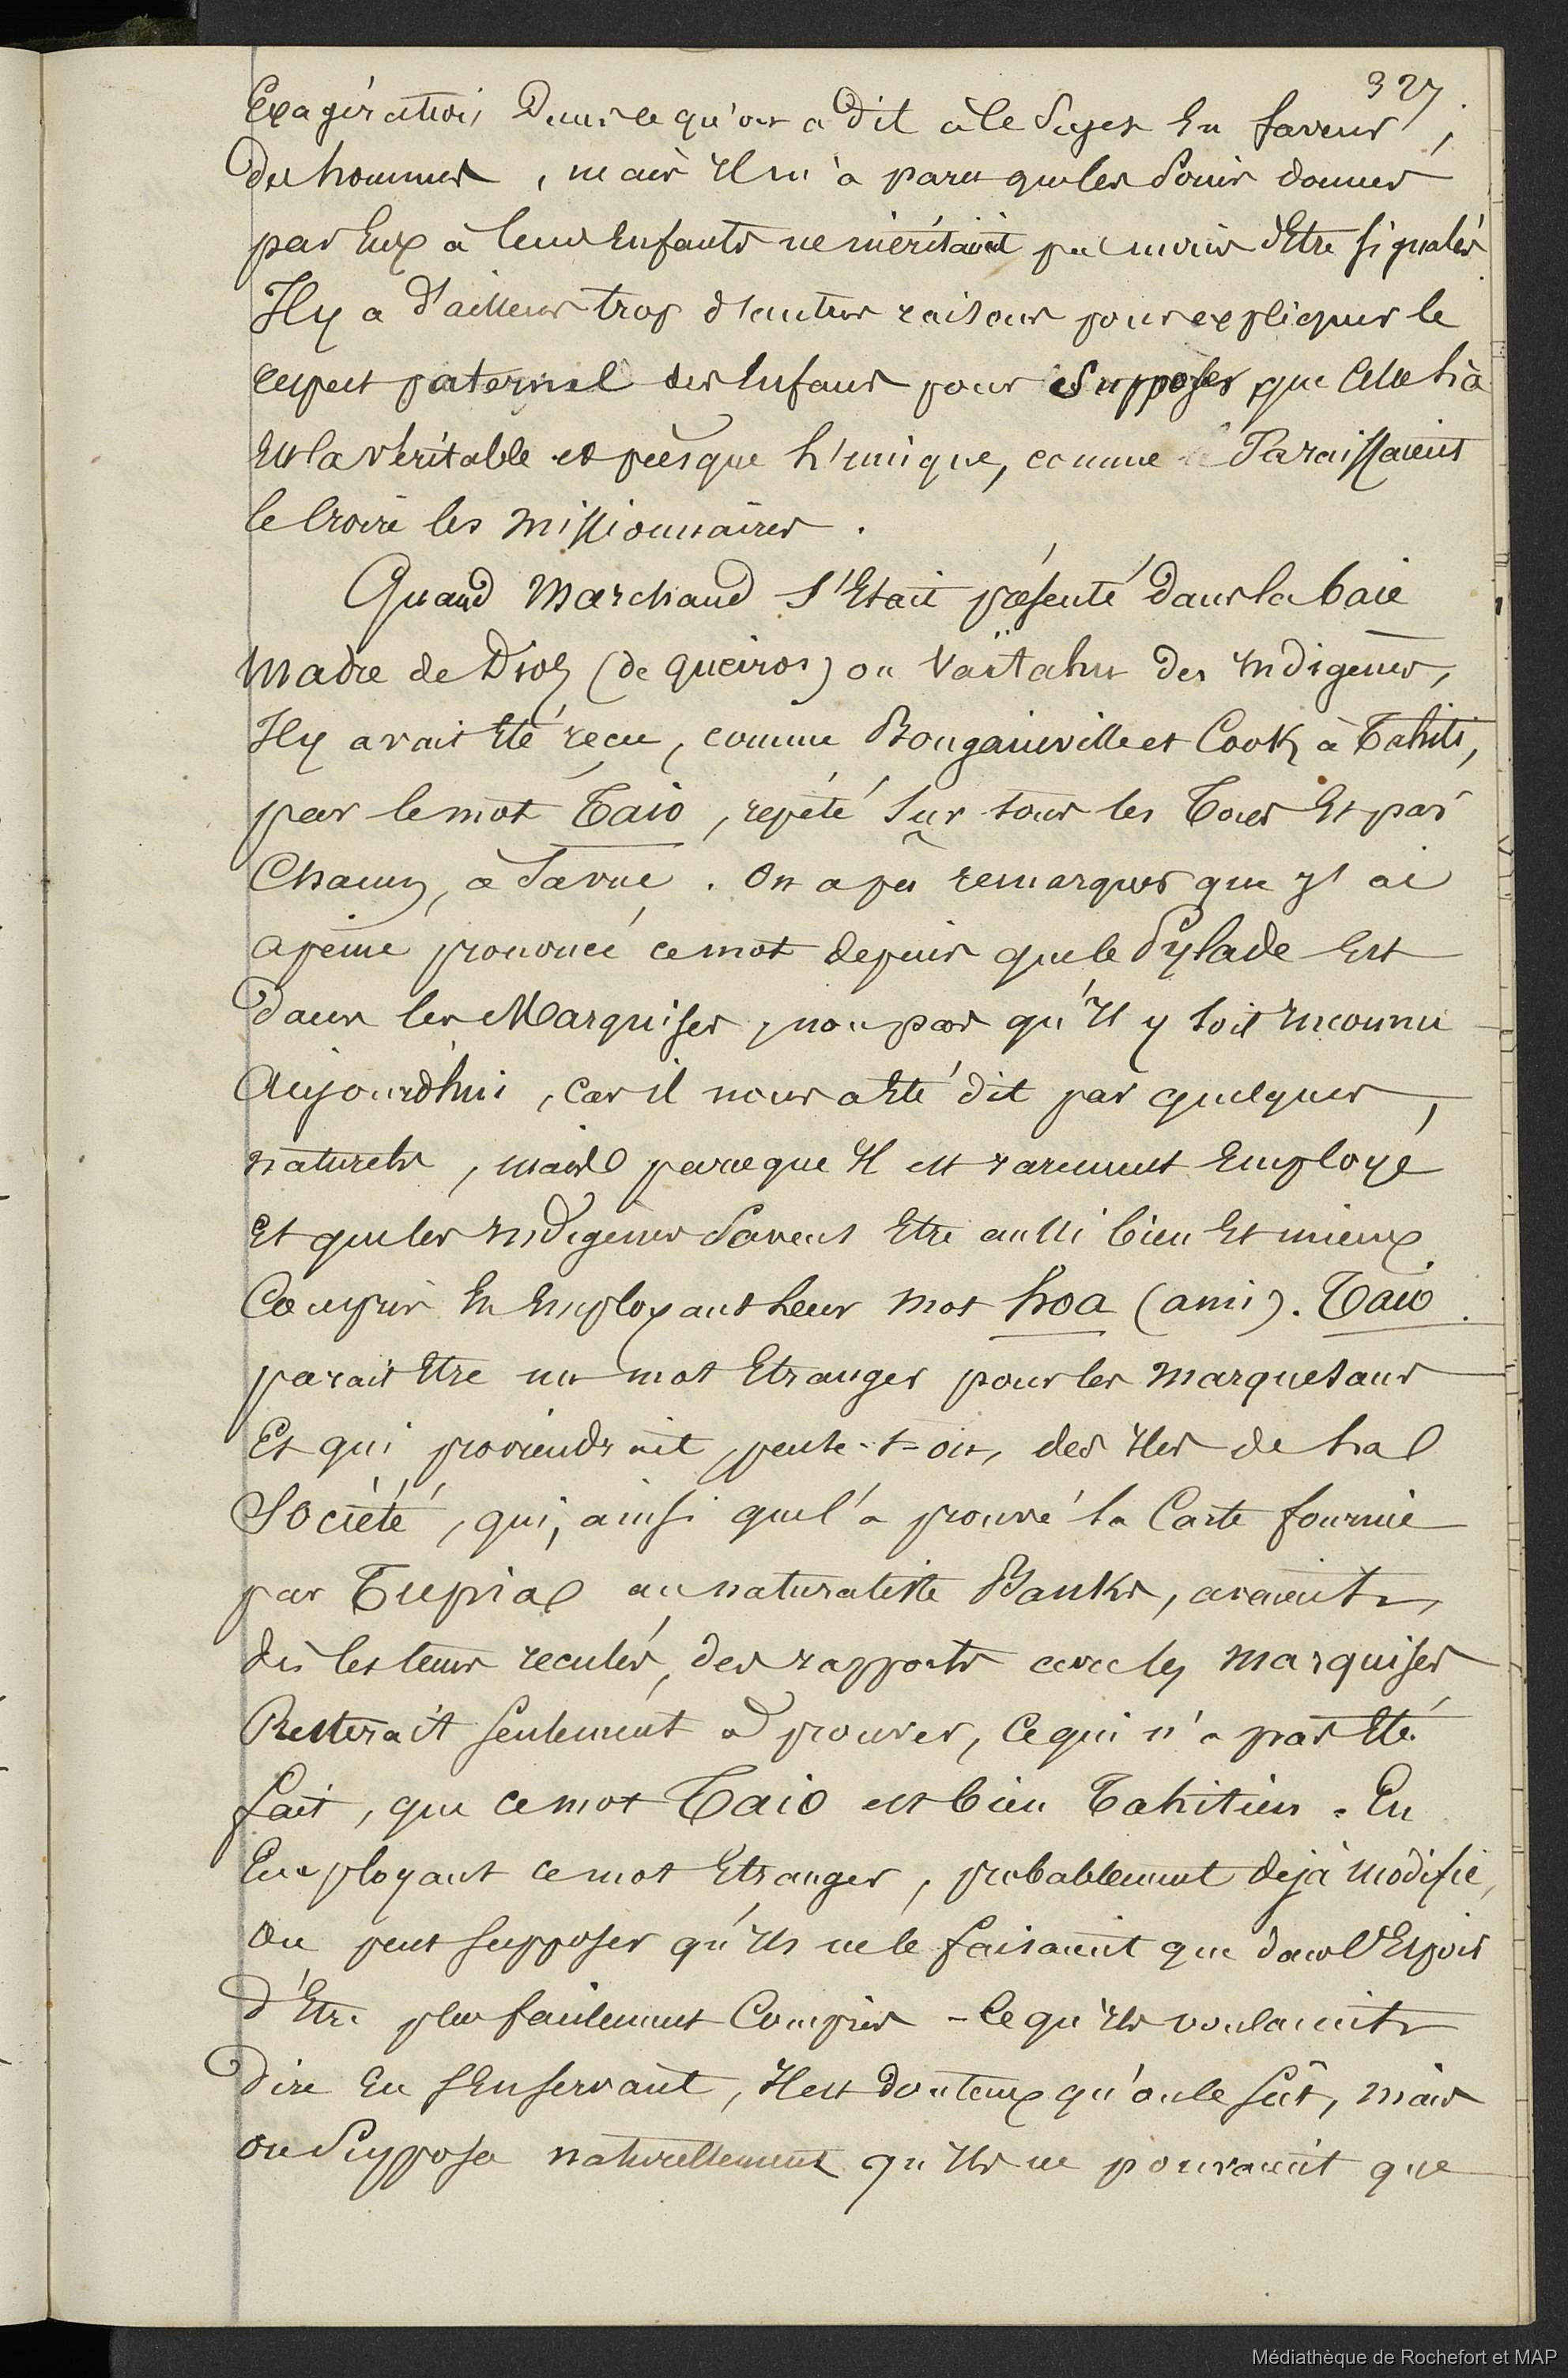 327
Exagération dans ce qu'on a dit à ce sujet en faveur
des hommes, mais il m'a paru que les soins donnés
par eux à leurs enfants ne méritaient pas moins d'être signalés
Il y a d'ailleurs trop d'autres raisons pour expliquer le
respect paternel des enfans pour supposer que celle là
est la véritable et presque l'unique, comme paraissaient
le croire les missionnaires.
Quand Marchand s'était présenté dans la baie
Madre de Dios (de Queiros) ou Vaïtahu des indigènes,
Il y avait été reçu, comme Bougainville et Cook à Tahiti,
par le mot Taio, répété sur tous les tons et par
chacun, à sa vue. On a pu remarquer que j'ai
à peine prononcé ce mot depuis que le Pylade est
dans les Marquises, non pas qu'il y soit inconnu
aujourd'hui, car il nous a été dit par quelques
naturels, mais parceque il est rarement employé
et que les indigènes savent être aussi bien et mieux
compris en employant leur mot hoa (ami). Taio
parait être un mot étranger pour les marquesans
Et qui proviendrait, pense-t-on, des iles de la
Société, qui, ainsi que l'a prouvé la carte fournie
par Tupia au naturaliste Banks, avaient
dès les tems reculés, des rapports avec les marquises
Resterait seulement à prouver, ce qui n'a pas été
fait, que ce mot Taio est bien Tahitien. En
Employant ce mot étranger, probablement déjà modifié,
on peut supposer qu'ils ne le faisaient que dans l'espoir
d'être plus facilement compris - ce qu'ils voulaient
dire en s'en servant, il est douteux qu'on le sût, mais
on supposa naturellement qu'ils ne pouvaient que
Médiathèque de Rochefort et MAP